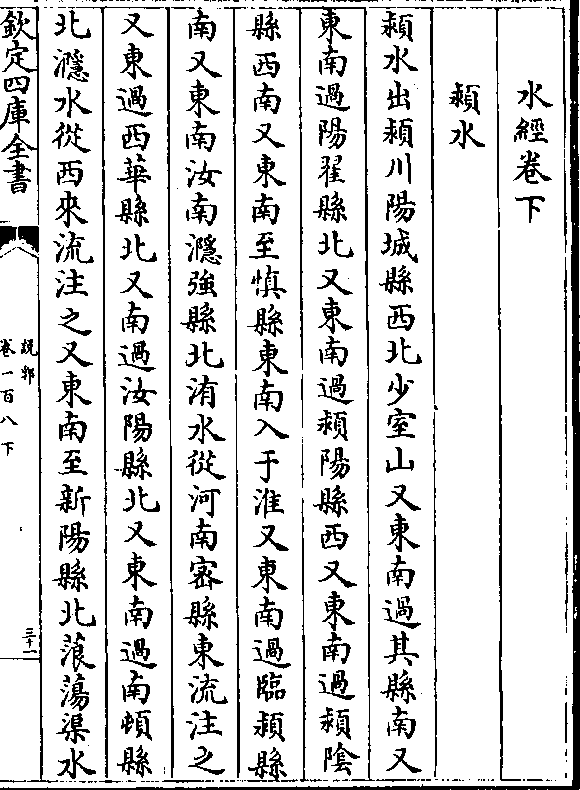 水經卷下
潁水
潁水出潁川陽城縣西北少室山又東南過其縣南又
東南過陽翟縣北又東南過潁陽縣西又東南過潁陰
縣西南又東南至慎縣東南入于淮又東南過臨潁縣
南又東南汝南濦強縣北洧水從河南密縣東流注之
又東過西華縣北又南過汝陽縣北又東南過南頓縣
北濦水從西來流注之又東南至新陽縣北蒗蕩渠水
欽定四庫全書
說郛
卷一百八下
三十一